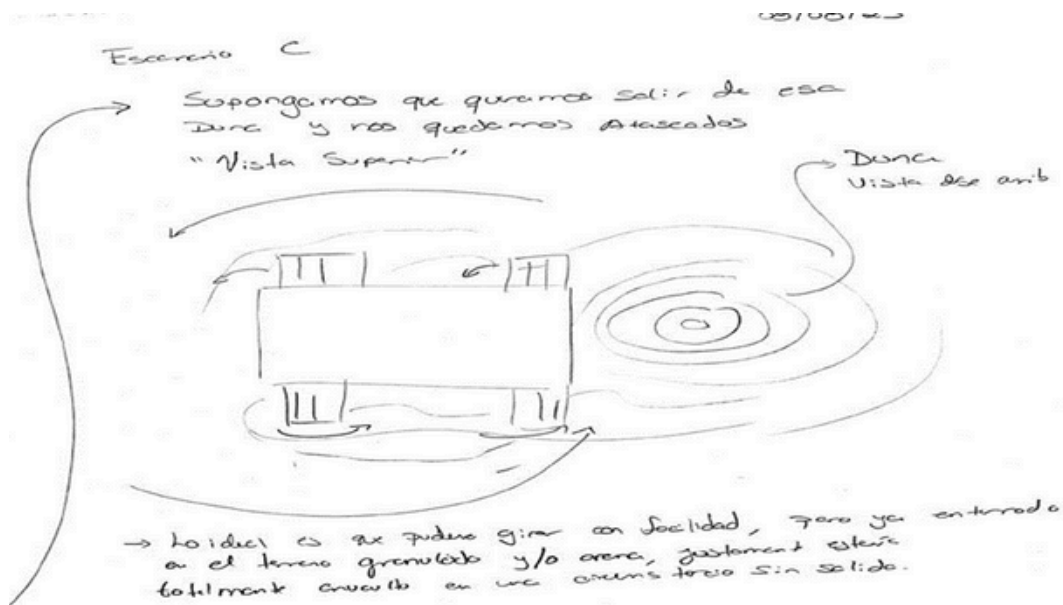 Escenario C
Supongamos que queramos salir de esa
Duna y nos quedamos Atascados
"Vista Superior"
Duna
Vista dse arrib
→ Lo ideal es que pudiera girar con facilidad, pero ya enterrado
en el terreno granulado y/o arena, justament estaría
totalmente envuelto en una sin salida.